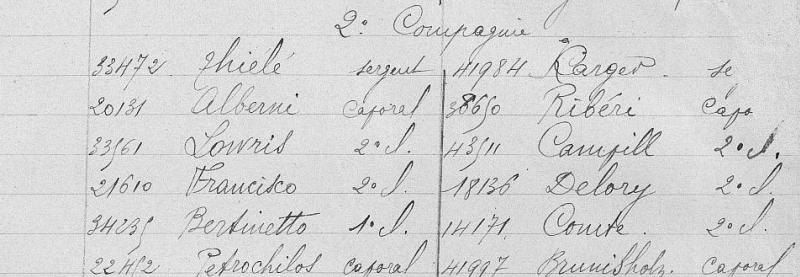 2e Compagnie
33472. Thielé sergent 41984 Karger. se
20131 Alberni Caporal 38650 Ribéri Capo
33561 Lowris 2e cl. 43511 Campill 2e cl.
21610 Francisko 2e cl. 18136 Delory 2e cl.
34235 Bertinetto 1e cl. 14171. Comte. 2e cl.
22452 Petrochilos Caporal 41997 Brunisholz. Caporal